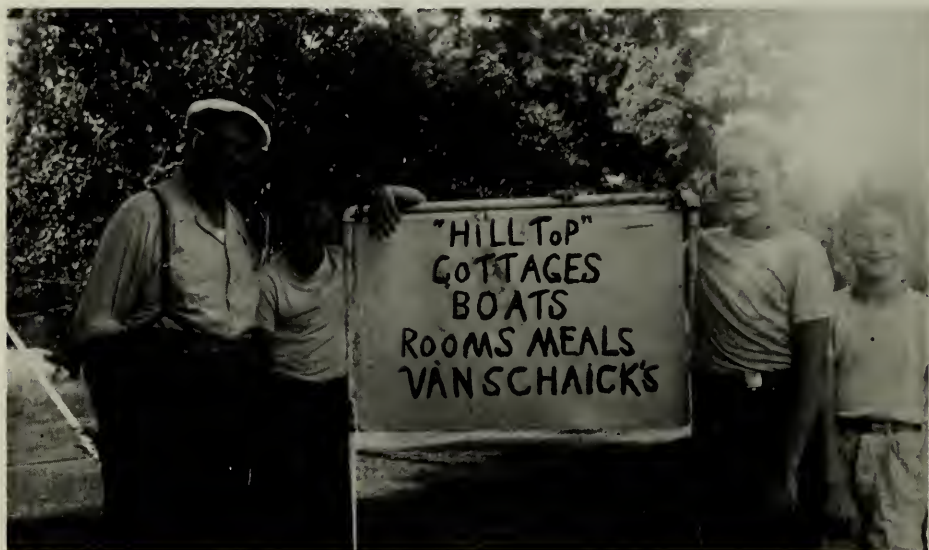 "HILLTOP"
COTTAGES
BOATS
ROOMS MEALS
VAN SCHAICK'S